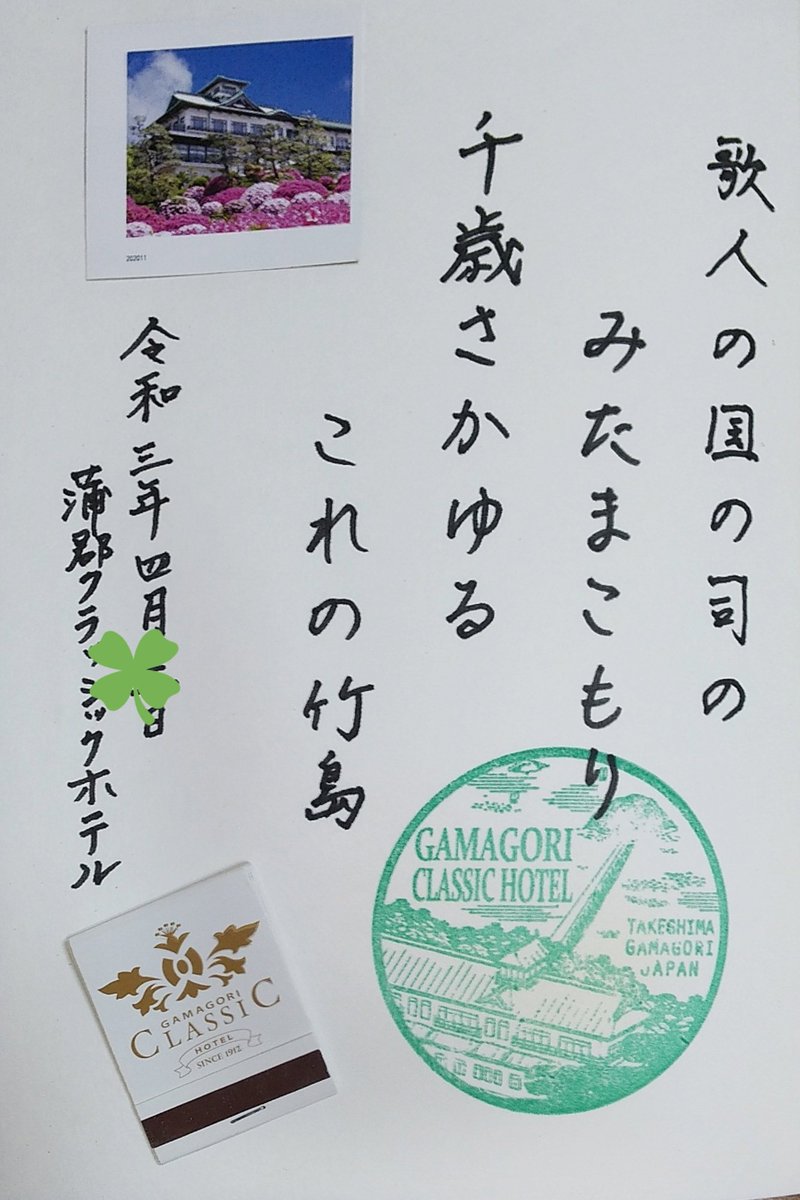 歌人の国の司の
みたまこもり
千歳さかゆる
これの竹島
令和三年四月
蒲郡クラッシックホテル
202011
GAMAGORI
CLASSIC HOTEL
TAKESHIMA
GAMAGORI
JAPAN
GAMAGORI
CLASSIC
HOTEL
SINCE 1912